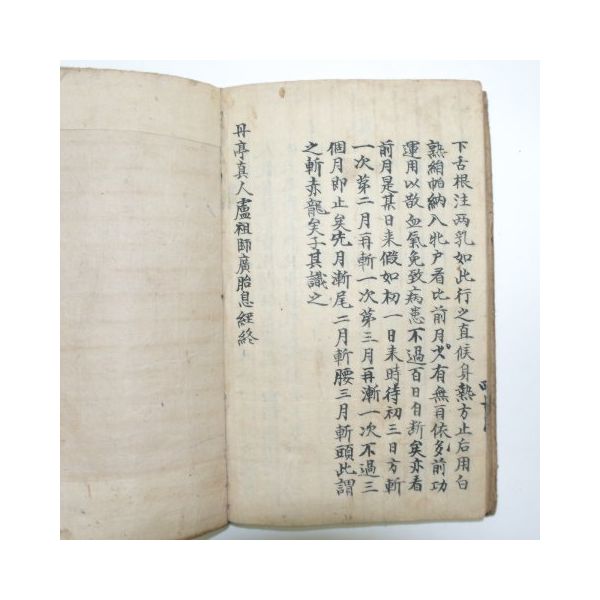 下舌根注两乳如此行之直候身熱方止后用白
熟絹帕納入牝户看比前月尐有無再依多前功
運用以散血氣免致病患不過百日自斷矣亦看
前月是某日来假如初一日来時待初三日方斬
一次第二月再斬一次第三月再漸一次不過三
個月即止矣先月漸尾二月斬腰三月斬頭此謂
之斬赤龍矣子其識之
丹亭真人盧祖師廣胎息經終